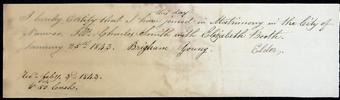 this day
I hereby Certify that I have joined in Matrimony in the City of
Nauvoo. Mr. Charles Smith with Elizabeth Booth.
January 25th 1843. Brigham Young.
Elder,
Rec. Feby. 3d 1843.